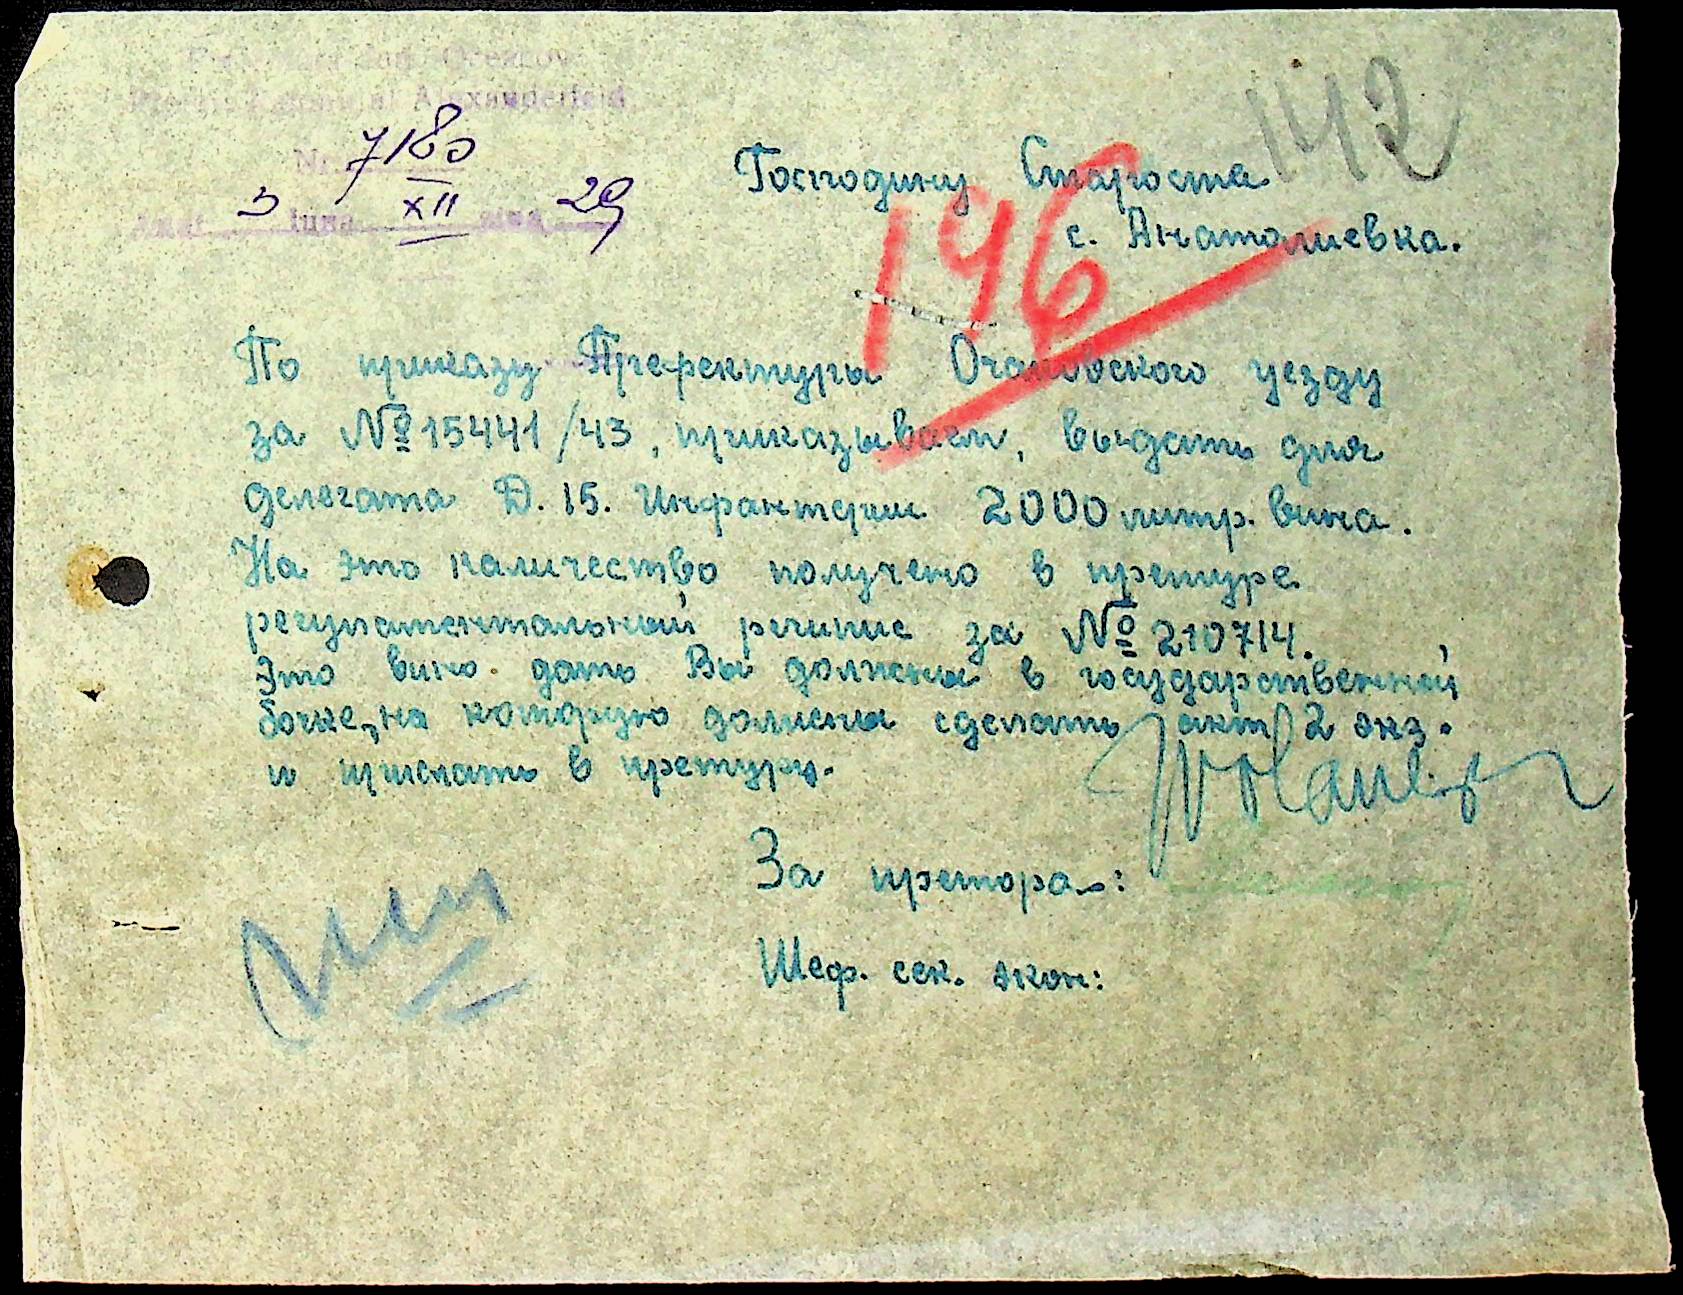 Prefectura Jud. Oceacov
Pretura Raionului Alexanderfeld
Nr. 7180
Anul 3 luna XII ziua 29
142
Господину Староста
196
с. Анатолиевка.
По приказу Префектуры Очаковского уезду
за № 15441/43, приказываем, выдать для
делегата Д. 15. Инфантерии 2000 литр. вина.
На это каличество получено в претуре
регулаентальный речипис за № 210714.
Это вино дать Вы должны в государственной
бочке, на которую должны сделать акт 2 экз.
и прислать в претуру.
За претора:
Шеф. сек. экон: